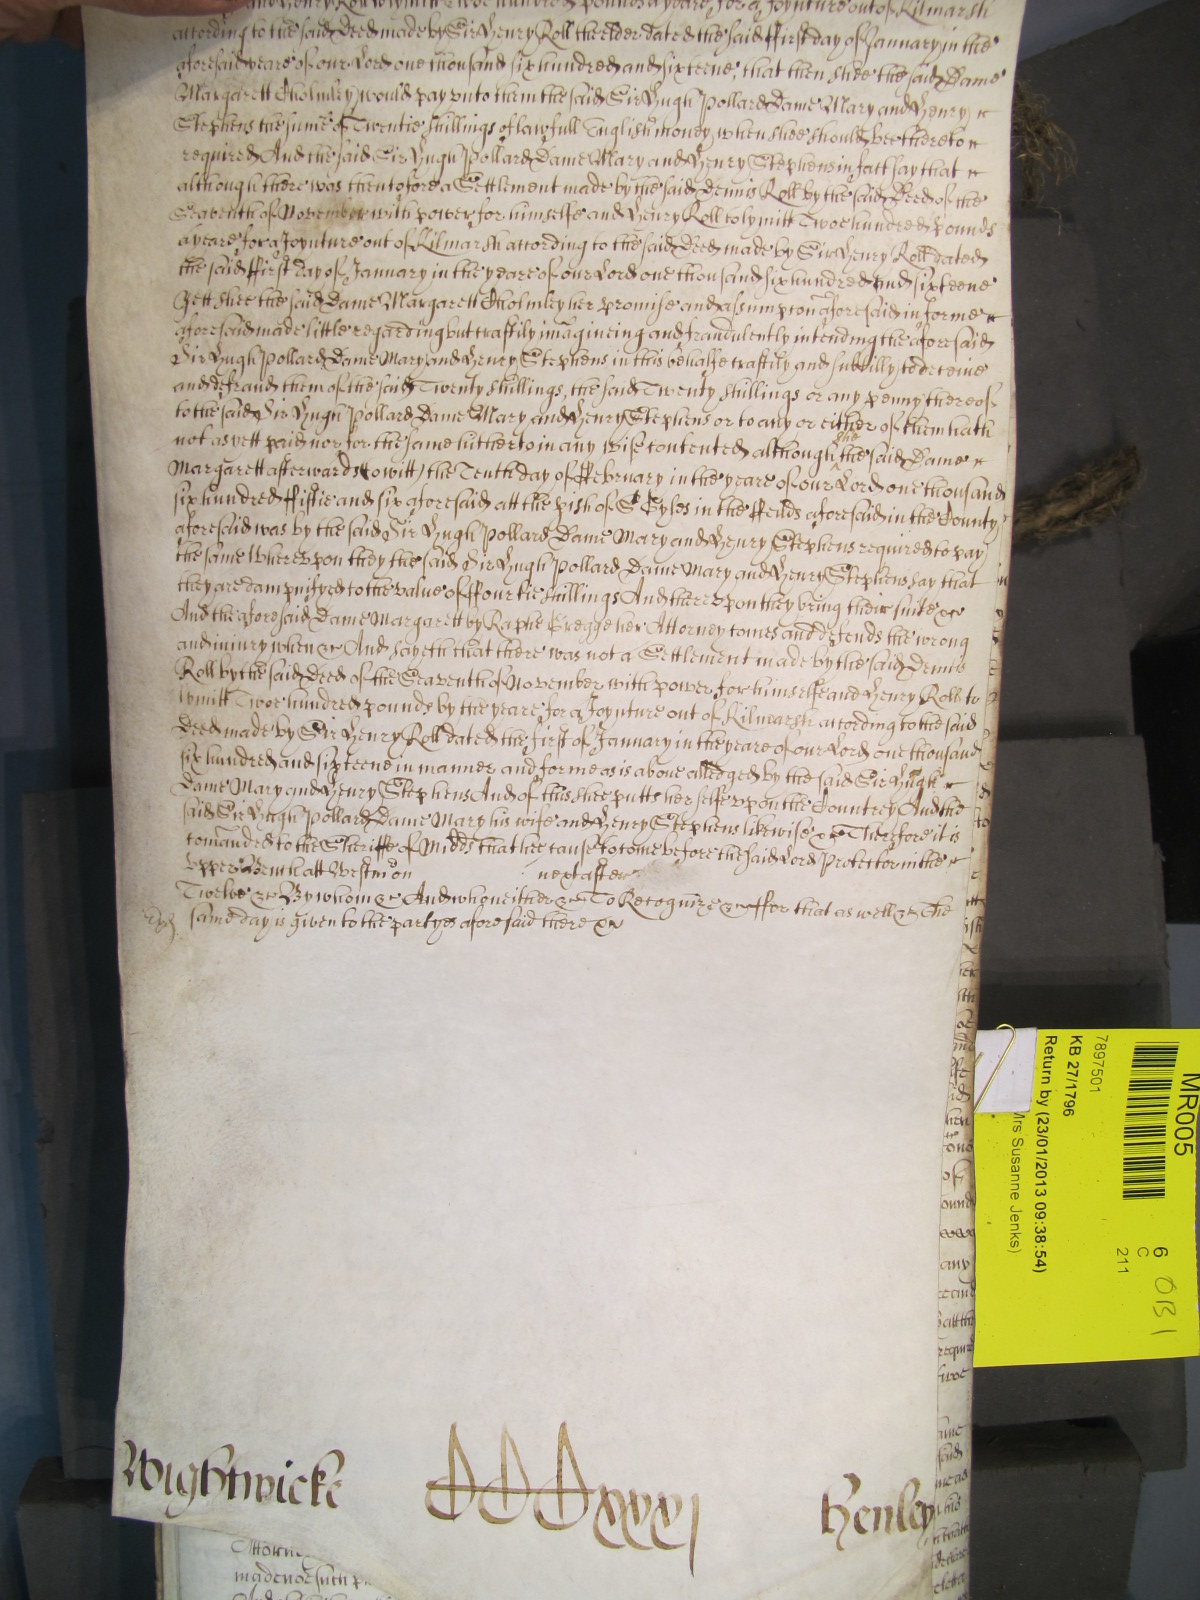 and Henry Roll to lymitt Twoe hundred pounds a yeare for a Joynture out of Kilmarsh
according to the said Deed made by Sir Henry Roll the elder dated the said ffirst day of January in the
aforesaid yeare of our Lord one thousand six hundred and sixteene, that then shee the said Dame
Margarett Cholmley would pay unto them the said Sir Hugh Pollard Dame Mary and Henry
Stephens the sume of Twentie shillings of lawfull English money, when shee should bee thereto
required, And the said Sir Hugh Pollard Dame Mary and Henry Stephens in fact say that
although there was then tofore a Settlement made by the said Dennis Roll by the said Deed of the
Seaventh of November with power for himselfe and Henry Roll to lymitt Twoe hundred pounds
a yeare for a Joynture out of Kilmarsh according to the said Deed made by Sir Henry Roll dated
the said ffirst day of January in the yeare of our Lord one thousand six hundred and sixteene
Yett shee the said Dame Margarett Cholmley her promise and assumpton aforesaid in forme
aforesaid made little regarding but craftily imagineing and fraudulently intending the aforesaid
Sir Hugh Pollard Dame Mary and Henry Stephens in this behalfe craftily and subtilly to deceive
and defraud them of the said Twenty shillings, the said Twenty shillings or any penny thereof
to the said Sir Hugh Pollard Dame Mary and Henry Stephens or to any or either of them hath
not as yett paid nor for the same hitherto in any wise contented although shee the said Dame
Margarett afterwards (to witt) the Tenth day of ffebruary in the yeare of our Lord one thousand
six hundred ffiftie and six aforesaid att the pish of St Gyles in the ffeilds aforesaid in the County
aforesaid was by the said Sir Hugh Pollard Dame Mary and Henry Stephens required to pay
the same Whereupon they the said Sir Hugh Pollard Dame Mary and Henry Stephens say that
they are dampnifyed to the value of ffourtie shillings And thereupon they bring their suite &c
And the aforesaid Dame Margarett by Raphe Gregge her Attorney comes and defends the wrong
and injury when &c And sayeth that there was not a Settlement made by the said Dennis
Roll by the said Deed of the Seaventh of November with power for himselfe and Henry Roll to
lymitt Twoe hundred pounds by the yeare for a Joynture out of Kilmarsh according to the said
Deed made by Sir Henry Roll dated the first of January in the yeare of our Lord one thousand
six hundred and sixteene in manner and forme as is above alledged by the said Sir Hugh
Dame Mary and Henry Stephens And of this shee putts her selfe upon the Countrey And the
said Sir Hugh Pollard Dame Mary his wife and Henry Stephens likewise &c Therefore it is
comanded to the Sheriffe of Midds that hee cause to come before the said Lord Protector in the
Upper Bench att Westm on next after
Twelve &c By whom &c And who neither &c To Recognize &c ffor that as well &c The
same day is given to the partyes aforesaid there &c
Wightwicke
CCCxxxj
Henley
Attorney
made noe such
MR005
7897501
KB 27/1796
Return by (23/01/2013 09:38:54)
Mrs Susanne Jenks)
6
C
211
OB 1